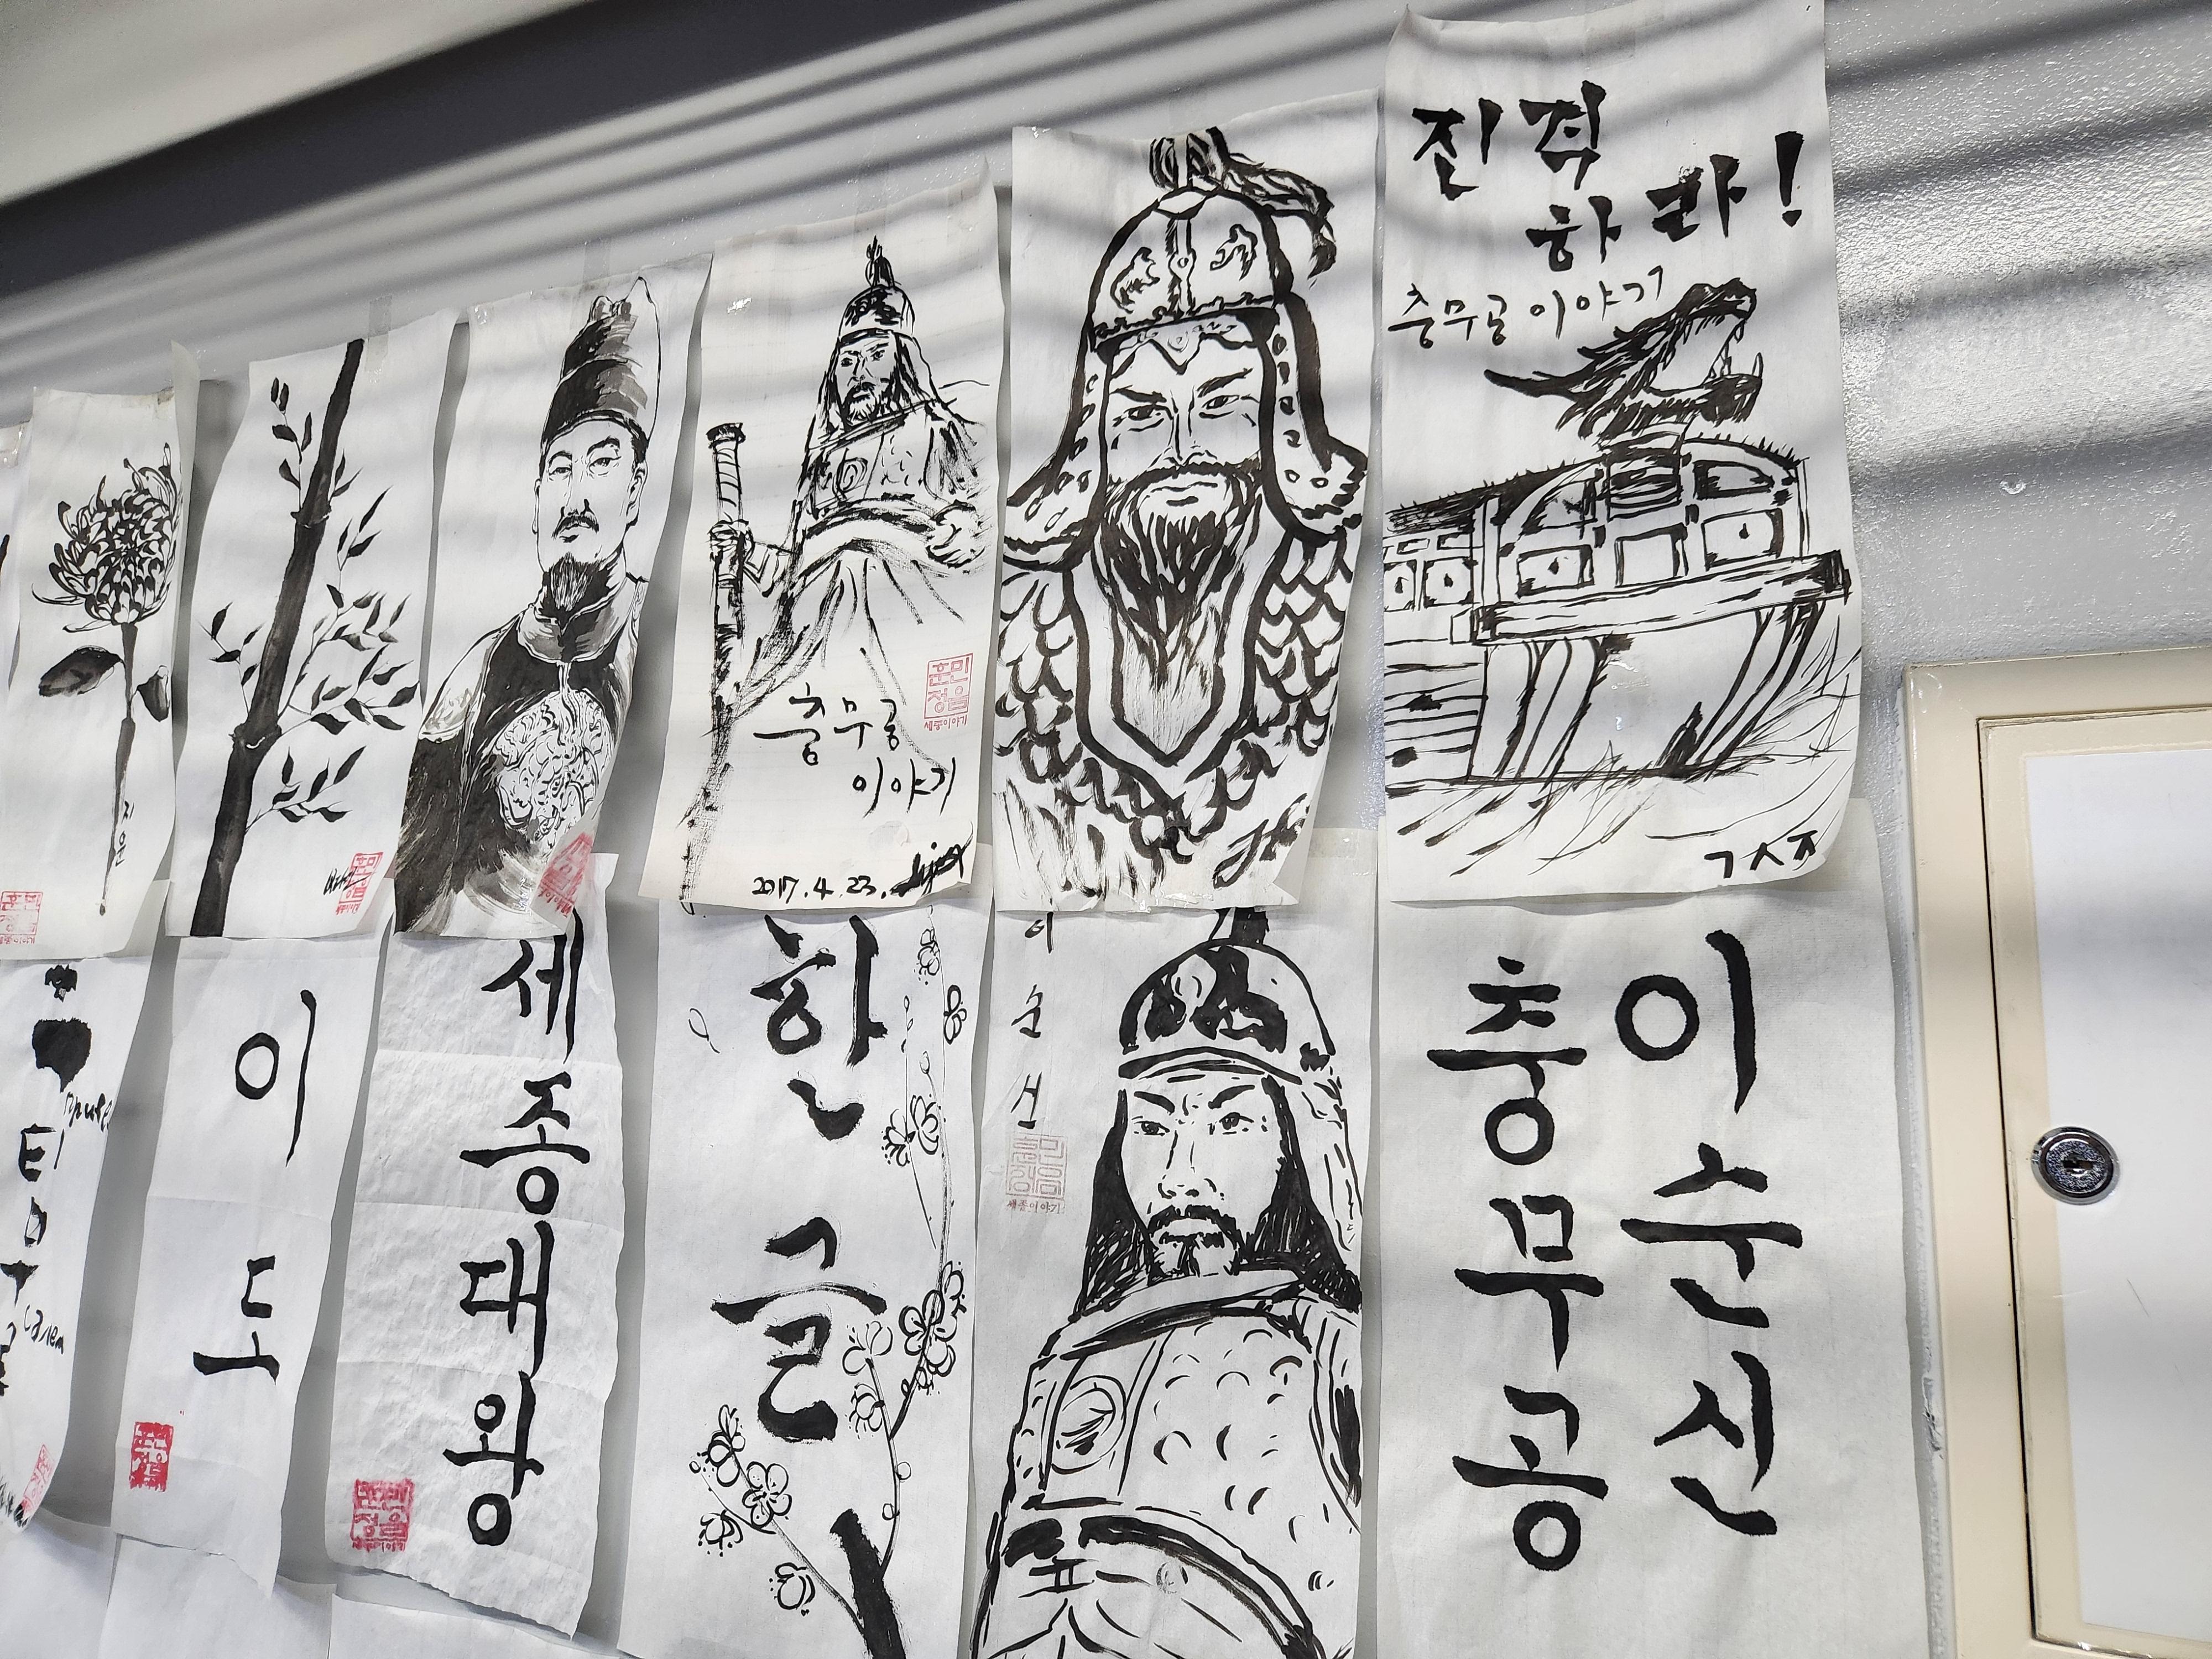 진격
하라!
충무공 이야기
ㄱㅅㅈ
충무공
이야기
훈민
정음
세종이야기
2017. 4. 23.
지운
훈민
정음
세종이야기
이도
세종대왕
한글
이순신
세종이야기
이순신
충무공